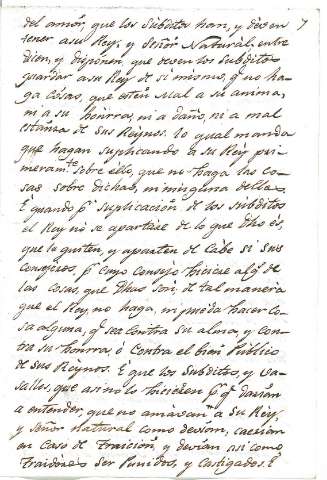 7
del amor, que los Subditos han, y deven
tener asu Rey, y Señor Natural, entre
dien, y disponen, que deven los Subditos
guardar asu Rey de si mismo, q̃ no ha-
ga cosas, que esten mal a su anima,
ni a su honrra, ni a daño, ni a mal
estanza de sus Reynos. lo qual manda
que hagan suplicando a su Rey pri-
meram.te sobre ello, que no haga las co-
sas sobre dichas, ni ninguna dellas.
E quando p.r suplicacion de los Subditos
el Rey no se apartase de lo que Dho es,
que le quiten, y aparten de Cabe si sus
Consejeros, p.r cuyo consejo hiciese alg.s de
las cosas, que Dhas son, de tal manera
que el Rey, no haga, ni pueda hacer co-
sa alguna, q̃ sea contra su alma, y con-
tra su honrra, ó contra el bien Publico
de sus Reynos. E que los Subditos, y va-
sallos, que asi no lo hiciesen p.r q.e darian
a entender, que no amavan à Su Rey,
y Señor natural como devian, caerian
en Caso de traicion, y devian asi como
traidores Ser Punidos, y castigados. E